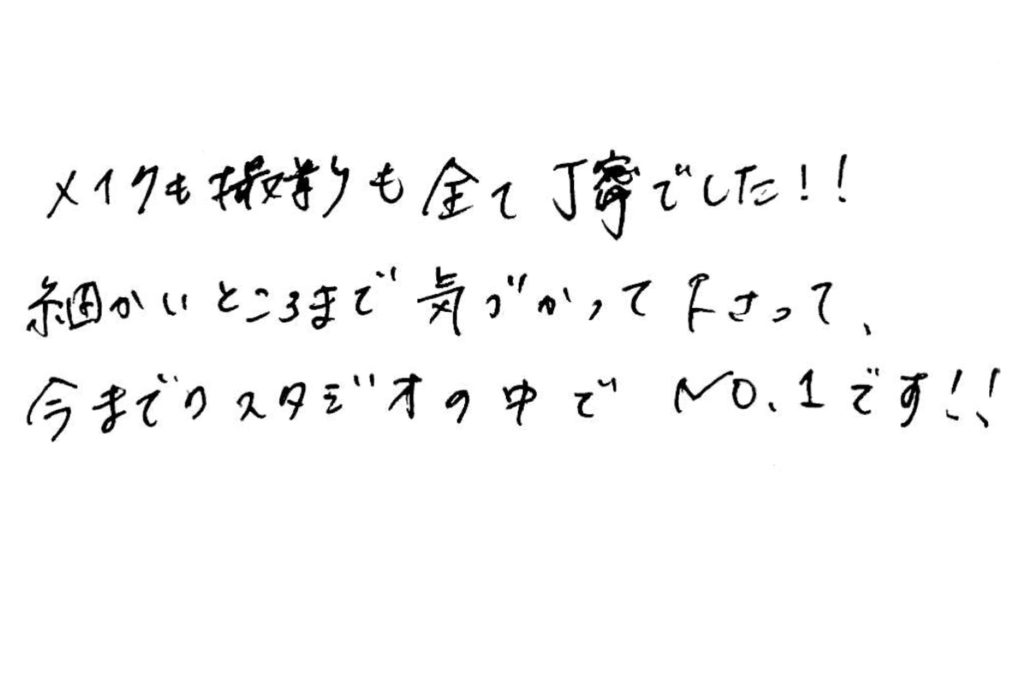 メイクも撮影も全て丁寧でした!!
細かいところまで気づかって下さって、
今までのスタジオの中でNO.1です!!